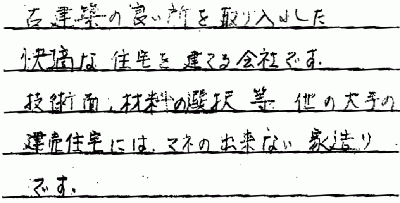 古建築の良い所を取り入れした
快適な住宅を建てる会社です.
技術面、材料の選択等 他の大手の
建売住宅には、マネの出来ない家造り
です.